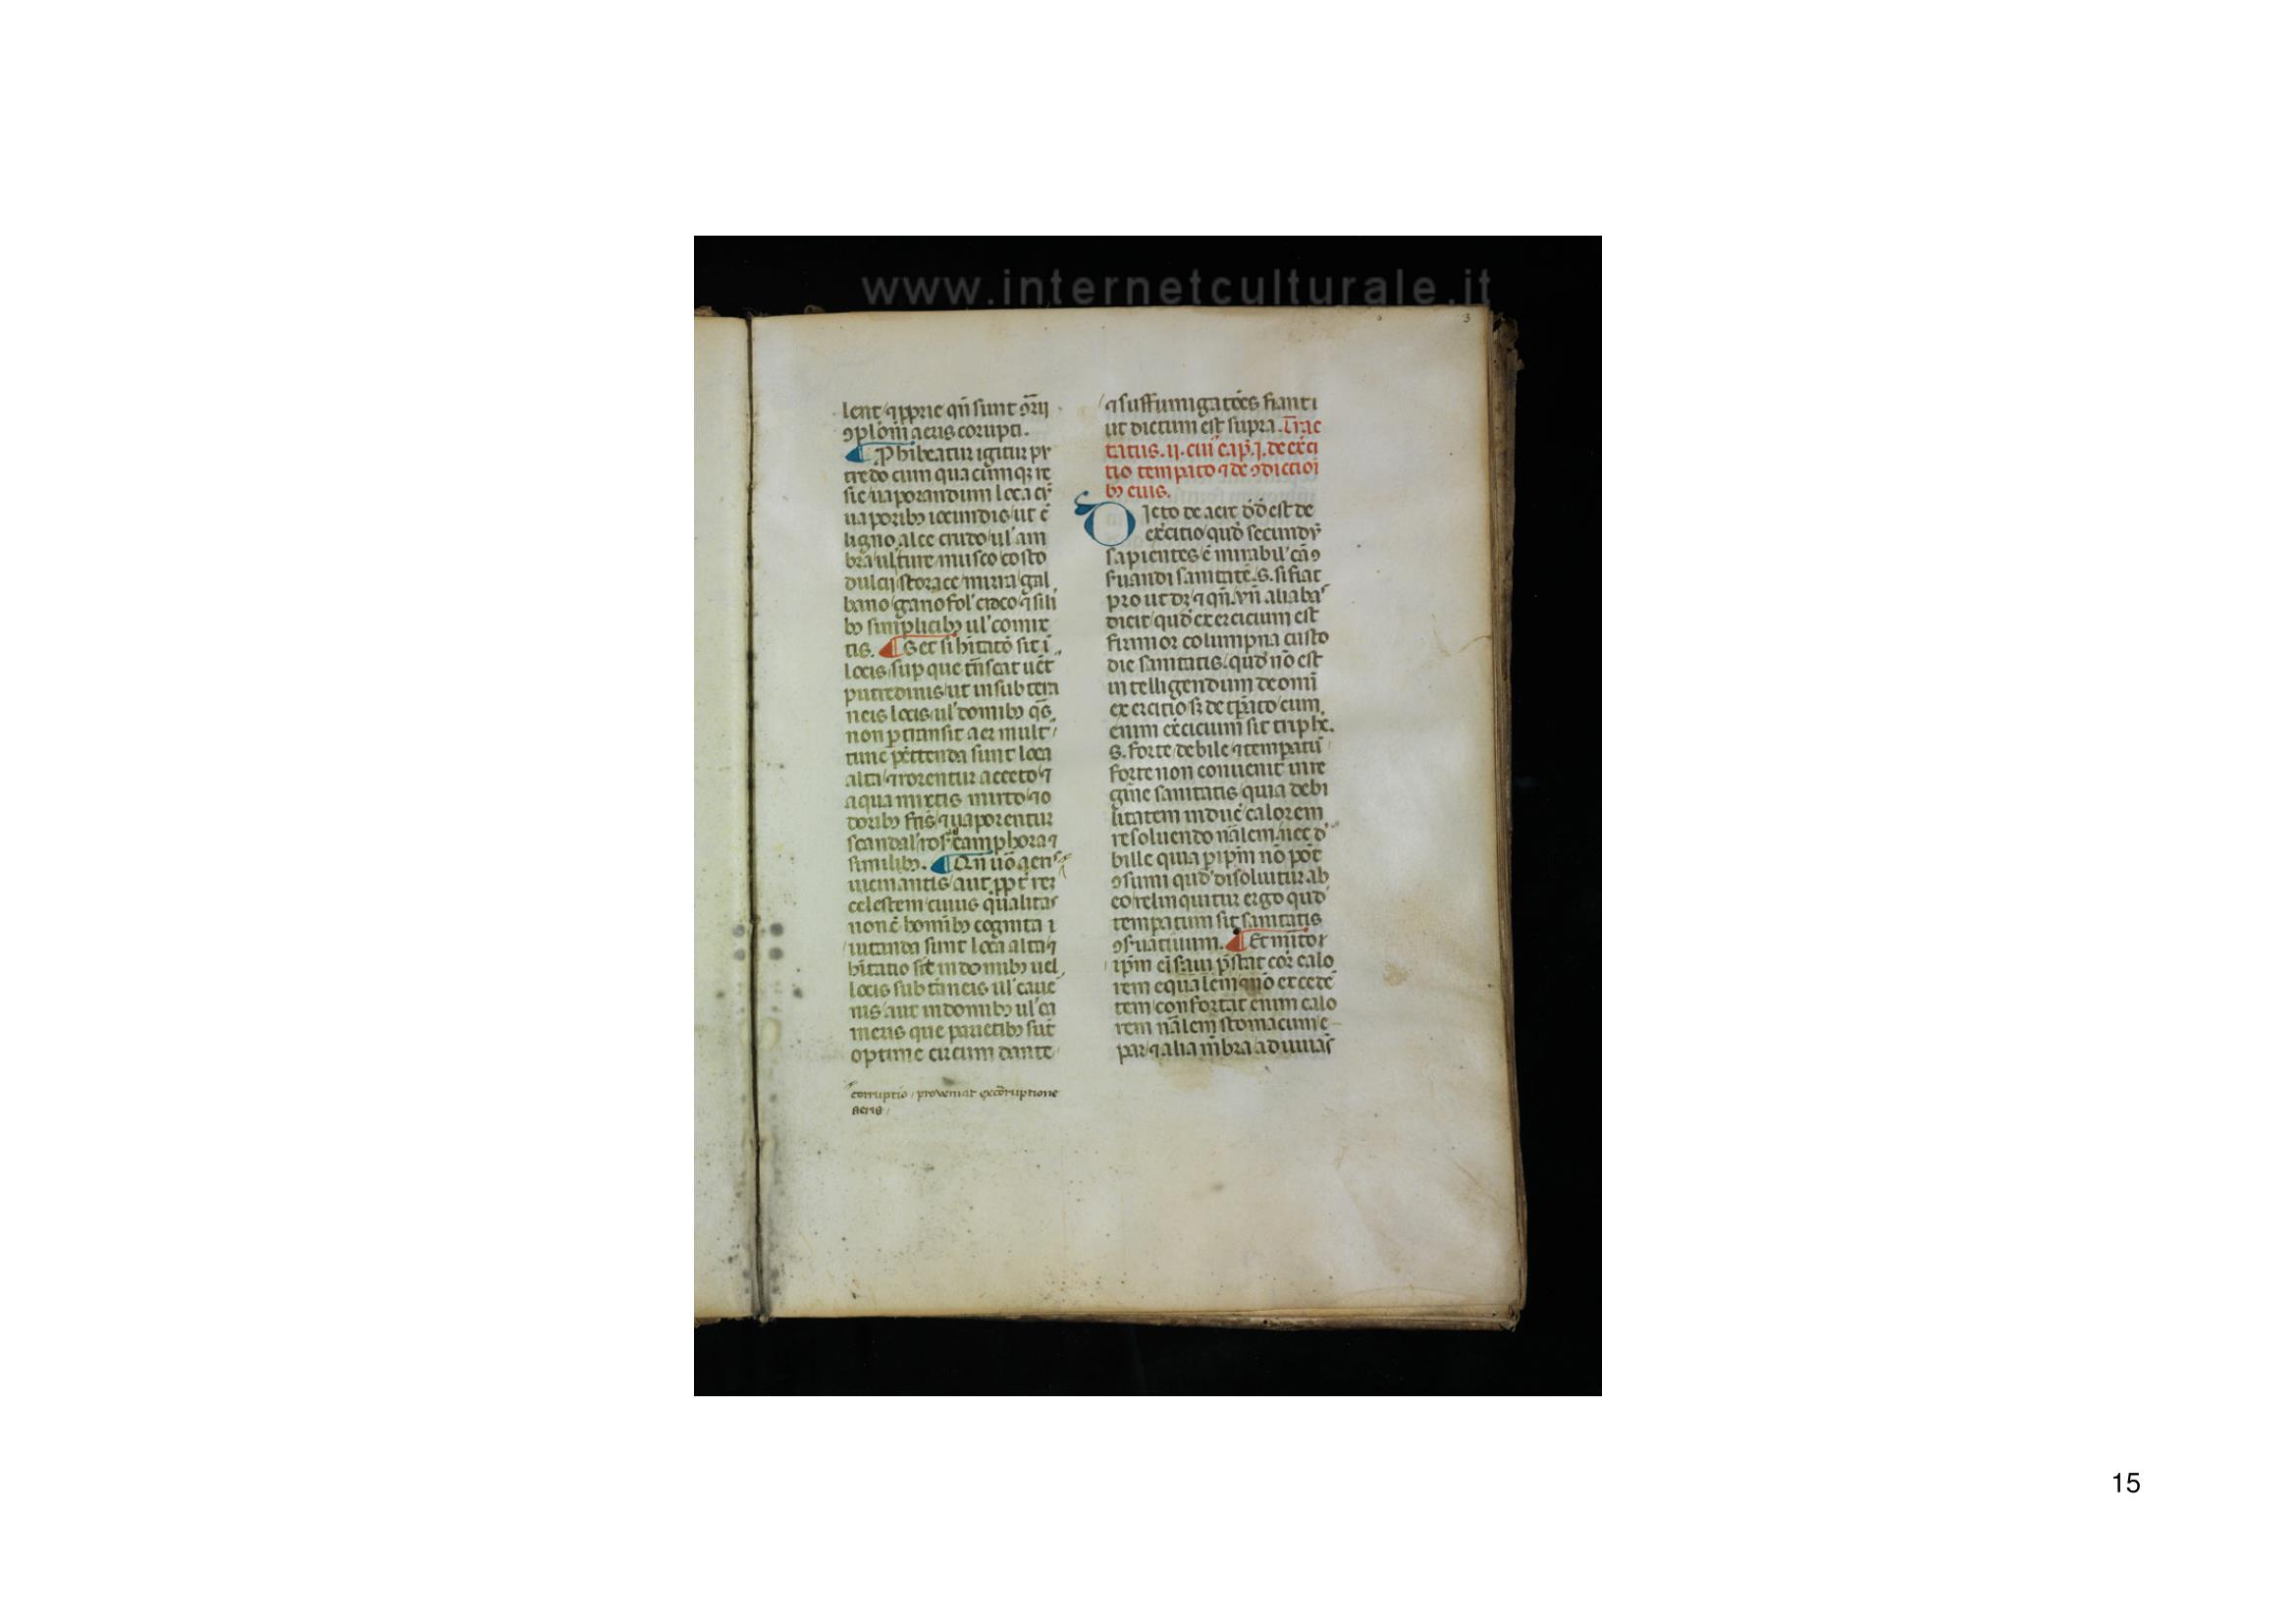 www.internetculturale.it
3
lent ⁊ pprie qn̄ sunt ꝯrij
ꝯplom̄ aeris corupti.
¶ Phibeatur igitur pu
tredo cum qua cumqꝫ re
sic uaporandum loca cū
uaporibꝫ iocundis ut ē
ligno aloe crudo ul' am
bra ul' ture musco costo
dulci storace mirra gal
bano gariofol' croco ⁊ sili
bꝫ simplicibꝫ ul' comix
tis. ¶ Set si hītato sit ī
locis sup que trn̄seat uēt
putredinis ut in subterra
neis locis ul' domibꝫ qs
non ptransit aer mult
tunc pettenda sunt loca
alta ⁊ rorentur acceto ⁊
aqua mixtis mirto ⁊ o
doribꝫ fris ⁊ uaporentur
scandal' ros' camphora ⁊
similibꝫ. ¶ Qn̄ uō aeris
uiemantis aut ppt' rez
celestem cuius qualitas
non ē homībꝫ cognita i
uitanda sunt loca alta ⁊
hītatio sit in domibꝫ uel
locis subtaneis ul' caue
nis aut in domibꝫ ul' ca
meris que parietibꝫ sūt
optime circum dante
corruptio proveniat ex corruptione
aeris
⁊ suffumigatōes fiant i
ut dictum est supra. Trac
tatus .ij. cui' cap. j. de exci
tio tempato ⁊ de ꝯdictioī
bꝫ eius.
Dicto de aere dd est de
excitio quod secundū
sapientes ē mirabil' cā ꝯ
suandi sanitatē. s. si fiat
pro ut dꝫ ⁊ qn̄. vn̄ aliabas
dicit quod exercicium est
firmor columpna custo
die sanitatis. quod nō est
intelligendum de omī
exercitio sꝫ de tpato cum
enim excicium sit triplex.
s. forte debile ⁊ tempatū
forte non conuenit in re
gīne sanitatis quia debi
litatem induc' calorem
resoluendo nālem. nec d'
bille quia p ipm nō pōt
ꝯsumi quod disoluitur ab
eo relinquitur ergo quod
tempatum sit sanitatis
ꝯsuatiuum. ¶ Et
ipm ei' pstat cor calo
rem equalem ⁊ nō excedē
tem confortat enim calo
rem nālem stomacum e
par ⁊ alia mbra adiuuās
15